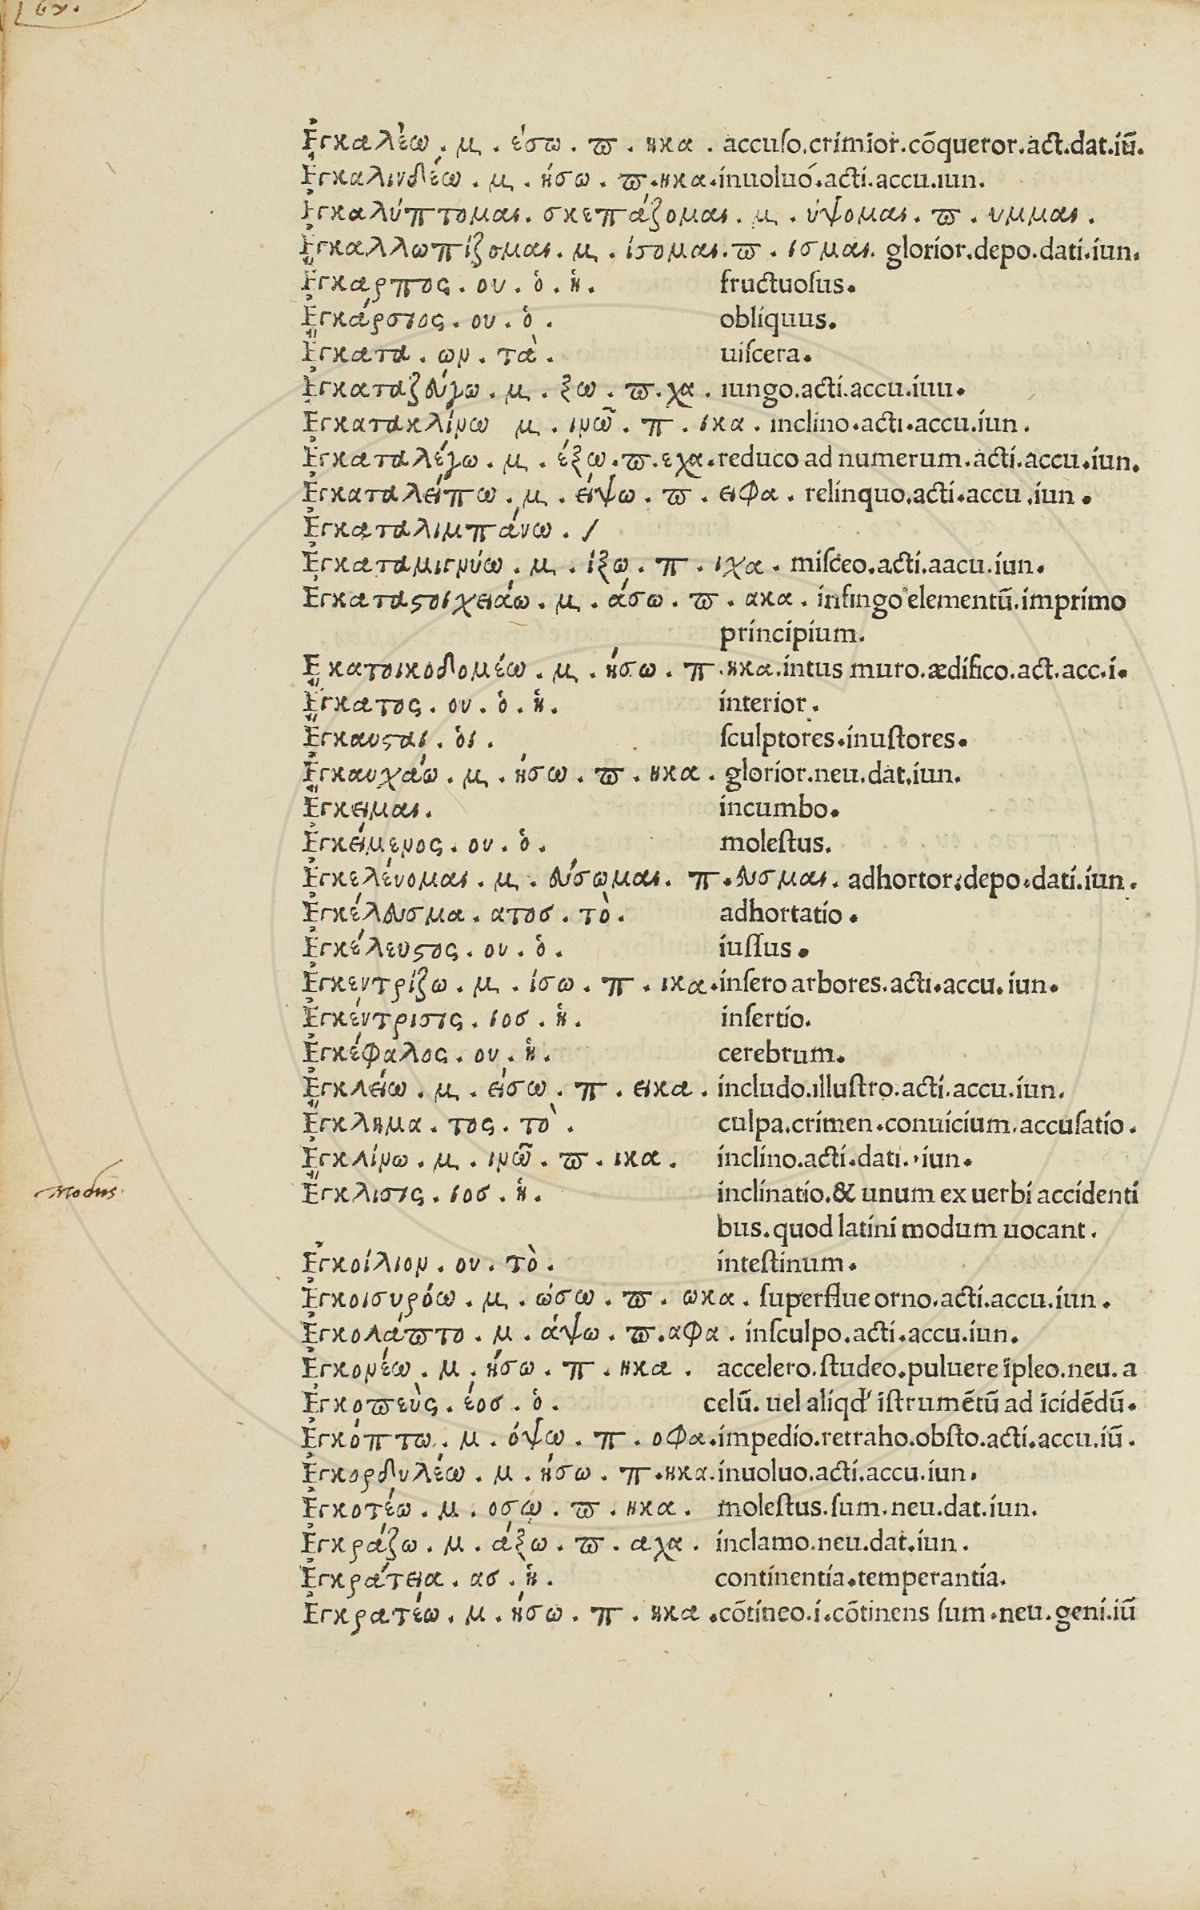 Ἐγκαλέω . μ . έσω . π . ηκα . accuso.crimior.cōqueror.act.dat.iū.
Ἐγκαλινδέω . μ . ήσω . π . ηκα . inuoluo.acti.accu.iun.
Ἐγκαλύπτομαι . σκεπάζομαι . μ . ύψομαι . π . υμμαι .
Ἐγκαλλωπίζομαι . μ . ίσομαι . π . ισμαι . glorior.depo.dati.iun.
Ἔγκαρπος . ου . ὁ . ἡ . fructuosus.
Ἐγκάρσιος . ου . ὁ . obliquus.
Ἔγκατα . ων . τὰ . uiscera.
Ἐγκαταζεύγω . μ . ξω . π . χα . iungo.acti.accu.iuu.
Ἐγκατακλίνω μ . ινῶ . π . ικα . inclino.acti.accu.iun.
Ἐγκαταλέγω . μ . έξω . π . εχα . reduco ad numerum.acti.accu.iun.
Ἐγκαταλείπω . μ . είψω . π . ειφα . relinquo.acti.accu.iun.
Ἐγκαταλιμπάνω . /
Ἐγκαταμιγνύω . μ . ίξω . π . ιχα . misceo.acti.aacu.iun.
Ἐγκαταϛοιχειάω . μ . άσω . π . ακα . infingo elementū.imprimo
principium.
Ἐ κατοικοδομέω . μ . ήσω . π . ηκα . intus muro.ædifico.act.acc.i.
Ἔγκατος . ου . ὁ . ἡ . interior.
Ἔγκαυϛαι . ὁι . sculptores.inustores.
Ἐγκαυχάω . μ . ήσω . π . ηκα . glorior.neu.dat.iun.
Ἔγκειμαι . incumbo.
Ἐγκείμενος . ου . ὁ . molestus.
Ἐγκελένομαι . μ . εύσωμαι . π . ευσμαι . adhortor.depo.dati.iun.
Ἐγκέλευσμα . ατοσ . τὸ . adhortatio.
Ἐγκέλευϛος . ου . ὁ . iussus.
Ἐγκεντρίζω . μ . ίσω . π . ικα . insero arbores.acti.accu.iun.
Ἐγκέντρισις . ιοσ . ἡ . insertio.
Ἐγκέφαλος . ου . ἡ . cerebrum.
Ἐγκλείω . μ . είσω . π . εικα . includo.illustro.acti.accu.iun.
Ἔγκλημα . τος . τὸ . culpa.crimen.conuicium.accusatio.
Ἐγκλίνω . μ . ινῶ . π . ικα . inclino.acti.dati.iun.
Ἔγκλισις . ιοσ . ἡ . inclinatio.& unum ex uerbi accidenti
Modus.
bus.quod latini modum uocant.
Ἐγκοίλιον . ου . τὸ . intestinum.
Ἐγκοισυρόω . μ . ώσω . π . ωκα . superflue orno.acti.accu.iun.
Ἐγκολάπτο . μ . άψω . π . αφα . insculpo.acti.accu.iun.
Ἐγκονέω . μ . ήσω . π . ηκα . accelero.studeo.puluere īpleo.neu.a
Ἐγκοπεὺς . έοσ . ὁ . celū. uel aliqd' īstrumētū ad īcidēdū.
Ἐγκόπτω . μ . όψω . π . οφα . impedio.retraho.obsto.acti.accu.iū.
Ἐγκορδυλέω . μ . ήσω . π . ηκα . inuoluo.acti.accu.iun.
Ἐγκοτέω . μ . οσω . π . ηκα . molestus.sum.neu.dat.iun.
Ἐγκράζω . μ . άξω . π . αχα . inclamo.neu.dat.iun.
Ἐγκράτεια . ασ . ἡ . continentia.temperantia.
Ἐγκρατέω . μ . ήσω . π . ηκα . cōtineo.i.cōtinens sum.neu.geni.iū